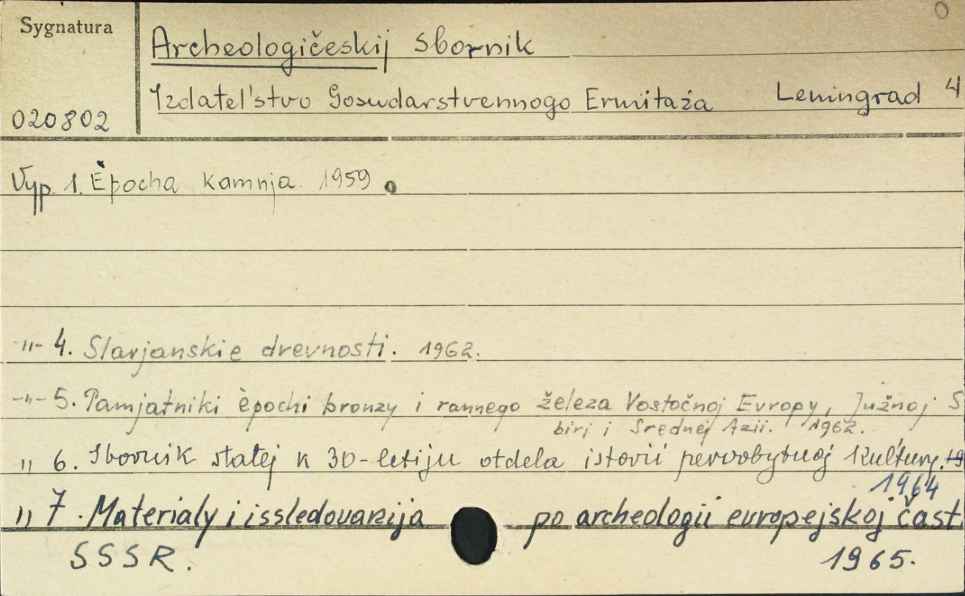 0
Sygnatura
Archeologičeskij sbornik
Izdatel'stvo Gosudarstvennogo Ermitaža Leningrad 4
020802
Vyp. 1. Èpocha kamnja. 1959
-"- 4. Slavjanskie drevnosti. 1962.
-"- 5. Pamjatniki èpochi bronzy i rannego železa Vostočnoj Evropy, Južnoj S
birj i Srednej Azii. 1962.
" 6. Sbornik statej k 30-letiju otdela istorii pervobytnoj kul'tury. 19
1964
" 7. Materialy i issledovanija po archeologii evropejskoj čast
SSSR. 1965.